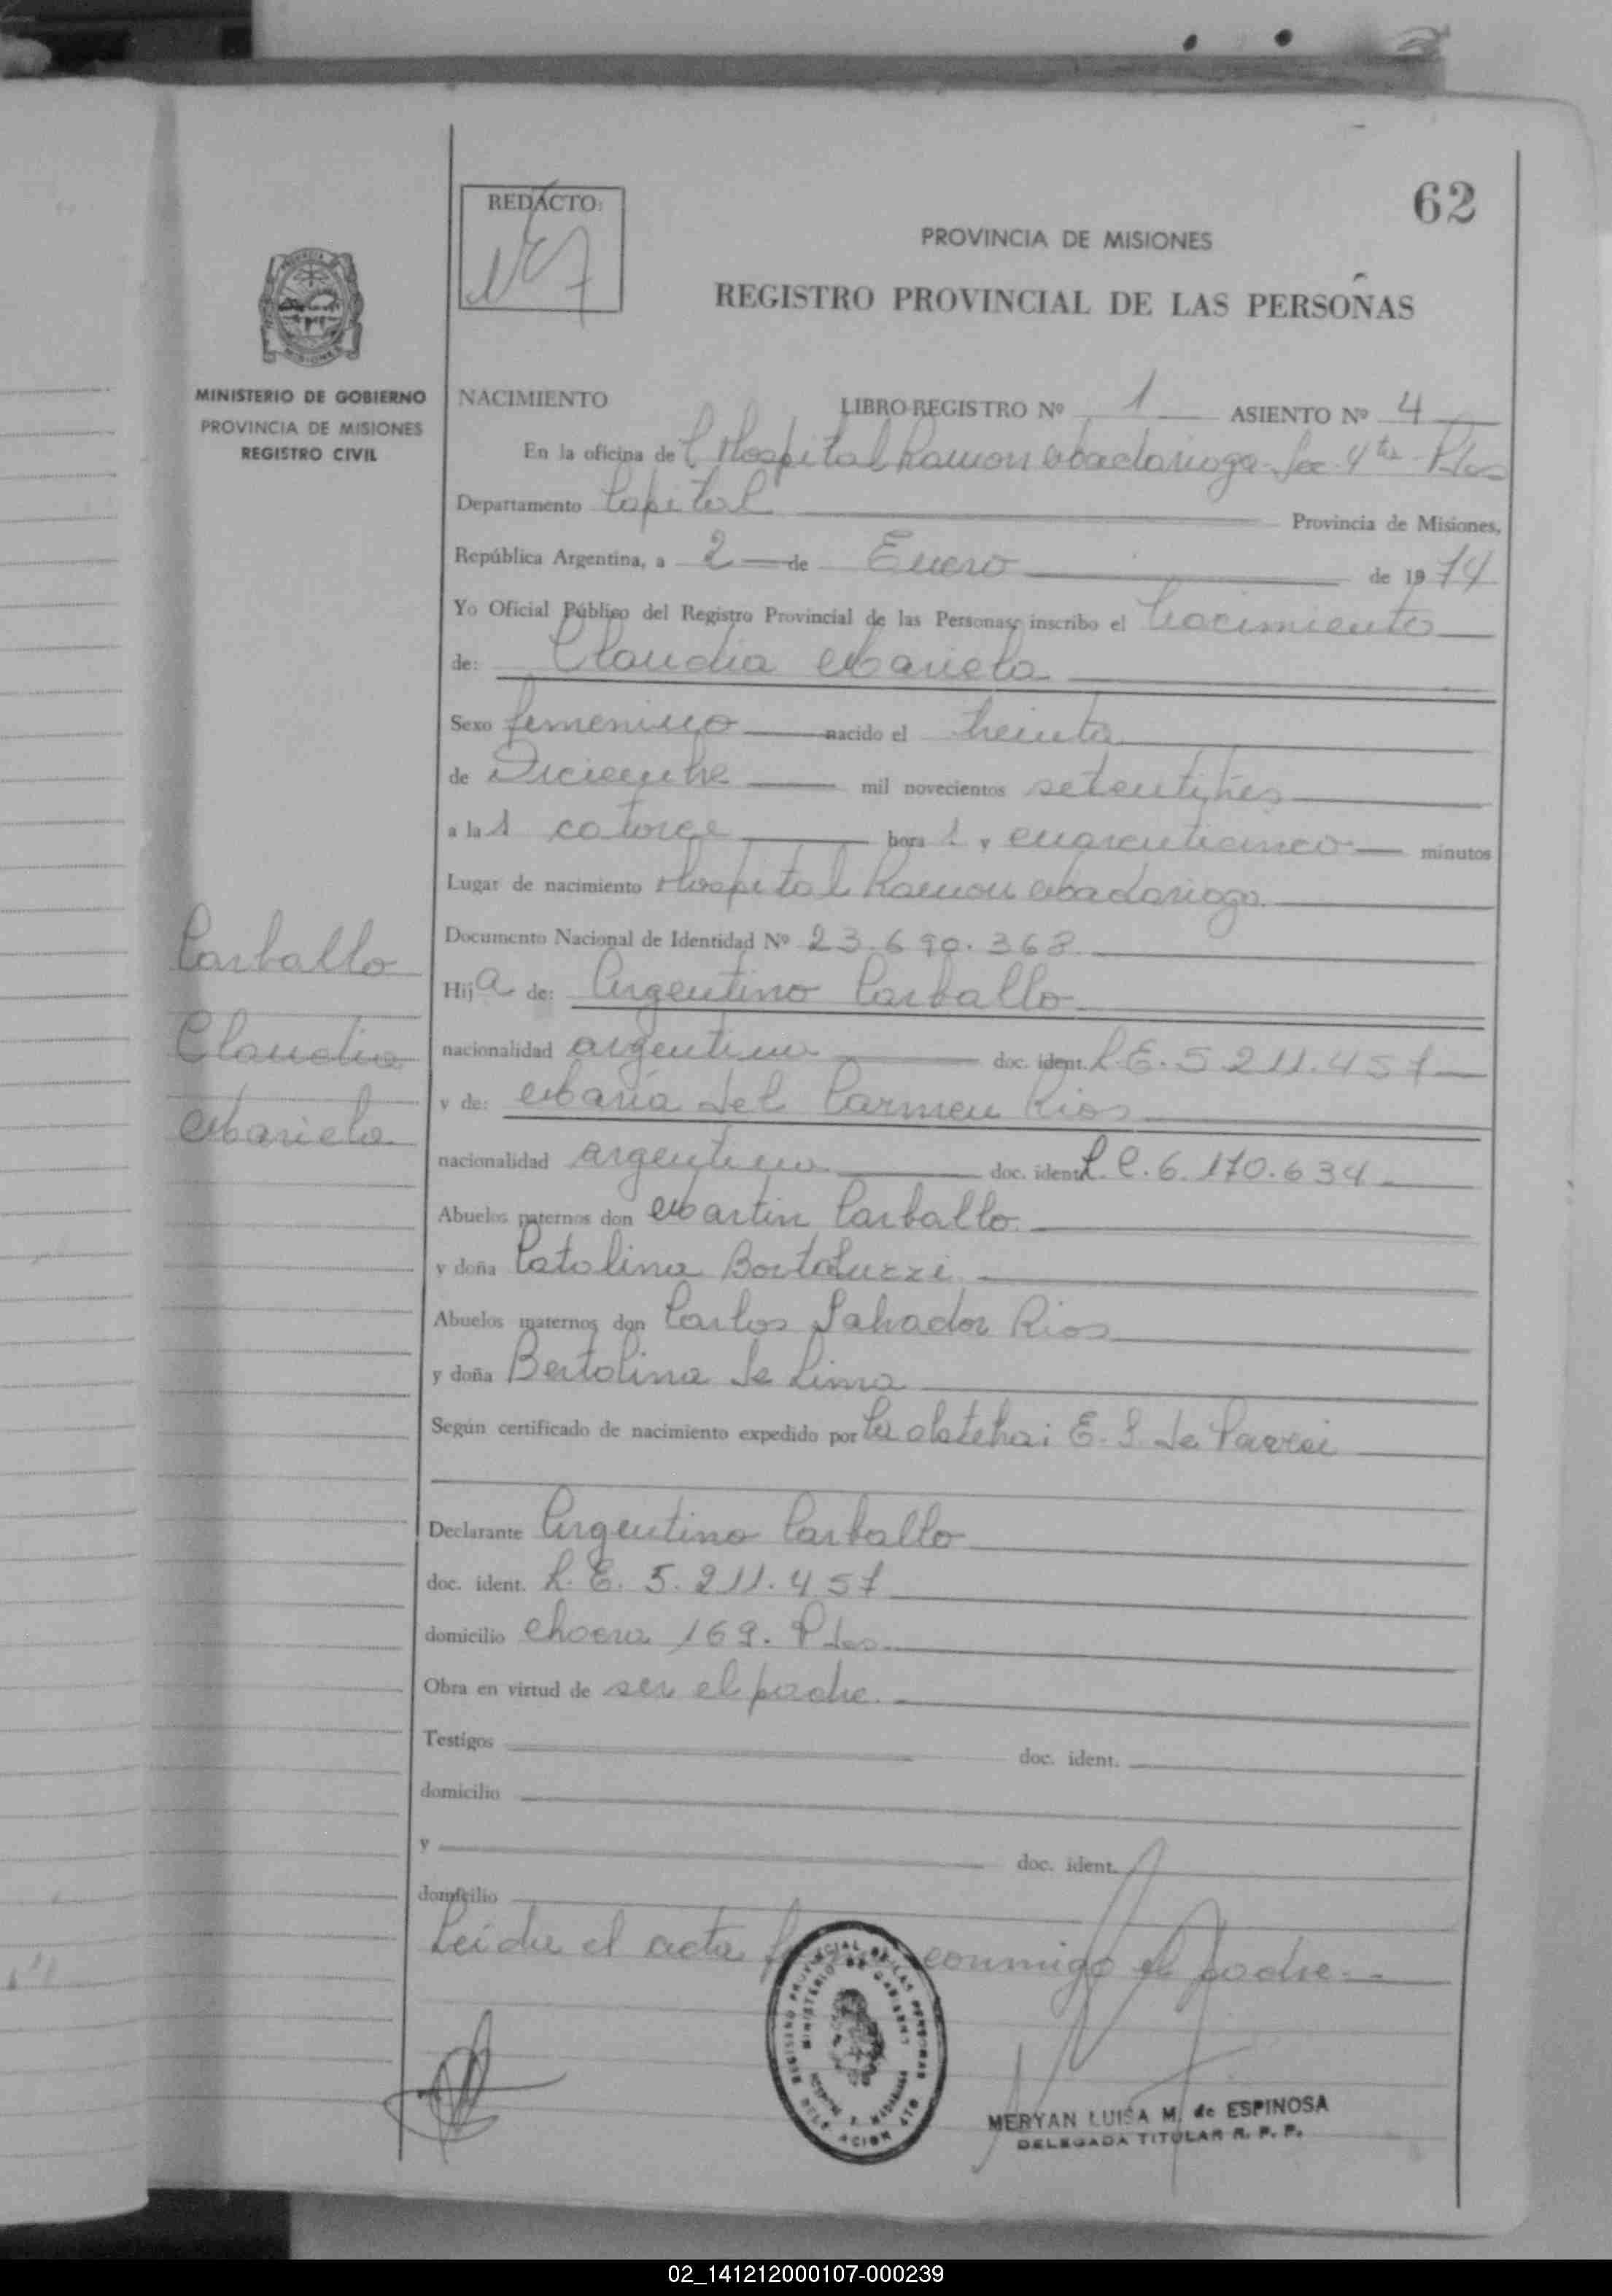 62
REDACTO:
PROVINCIA DE MISIONES
REGISTRO PROVINCIAL DE LAS PERSONAS
MINISTERIO DE GOBIERNO
PROVINCIA DE MISIONES
REGISTRO CIVIL
NACIMIENTO LIBRO-REGISTRO Nº 1 ASIENTO Nº 4
En la oficina de Hospital Ramon Madariaga Sec. 4ta Pdas
Departamento Capital Provincia de Misiones,
República Argentina, a 2 de Enero de 1974
Yo Oficial Público del Registro Provincial de las Personas, inscribo el nacimiento
de: Claudia Mariela
Sexo femenino nacido el treinta
de Diciembre mil novecientos setentitres
a las catorce horas y cuarenticinco minutos
Lugar de nacimiento Hospital Ramon Madariaga
Documento Nacional de Identidad Nº 23.690.363
Carballo
Claudia
Mariela
Hija de: Argentino Carballo
nacionalidad argentina doc. ident. L.E. 5.211.457
y de: María del Carmen Rios
nacionalidad argentina doc. ident. L.C. 6.170.634
Abuelos paternos don Martin Carballo
y doña Catolina Bortoluzzi
Abuelos maternos don Carlos Salvador Rios
y doña Bertolina de Lima
Según certificado de nacimiento expedido por la obstetra: E. S. de
Declarante Argentino Carballo
doc. ident. L. E. 5.211.457
domicilio 169. Pdas
Obra en virtud de ser el padre.
Testigos doc. ident.
domicilio
y doc. ident.
domicilio
Leida el acta conmigo el padre.
REGISTRO PROVINCIAL DE LAS PERSONAS
MINISTERIO DE GOBIERNO
HOSPITAL R. MADARIAGA
DELEGACION 4TA
MERYAN LUISA M. de ESPINOSA
DELEGADA TITULAR R. P. P.
02_141212000107-000239